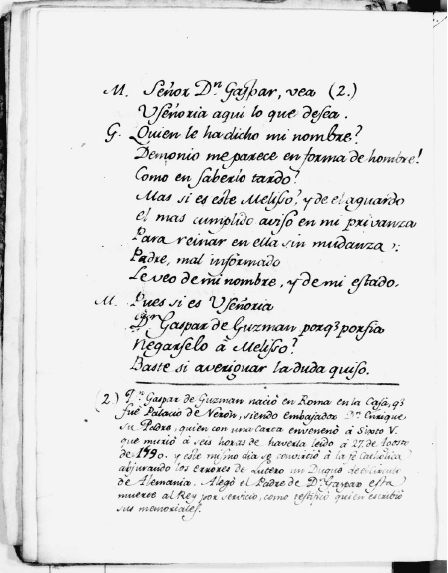 M. Señor Dn. Gaspar, vea (2.)
Vseñoria aqui lo que desea.
G. Quien le ha dicho mi nombre?
Demonio me parece en forma de hombre!
Como en saberlo tardo?
Mas si es este Melisso, y de el aguardo
el mas cumplido aviso en mi privanza
Para reinar en ella sin mudanza:
Padre, mal informado
Le veo de mi nombre, y de mi estado.
M. Pues si es Vseñoria
Dn. Gaspar de Guzman porq̃ porfia
Negarselo â Melisso?
Baste si averiguar la duda quiso.
(2.) Dn. Gaspar de Guzman naciò en Roma en la Casa, q̃
fuè Palacio de Neron, siendo embajador Dn. Enrique
su Padre, quien con una carta envenenò â Sixto V.
que muriò â seis horas de haverla leido â 27. de Agosto
de 1590. y este mismo dia se convirtiò â la fè Catholica
abjurando los errores de Lutero un Duque de el
de Alemania. Alegò el Padre de Dn. Gaspar esta
muerte al Rey por servicio, como testificò quien escribiò
sus memoriales.